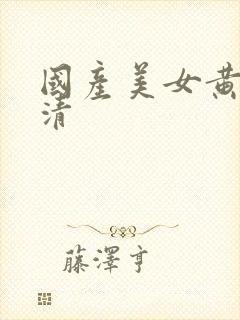 國產美女黃
清
藤澤亨